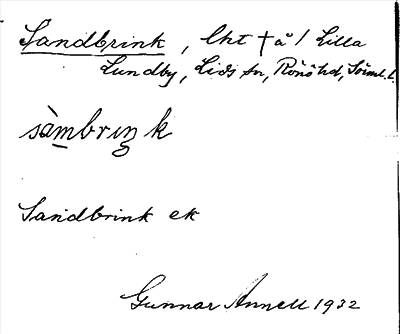 Sandbrink, lht † å / Lilla
Lundby, Lids sn, Rönö hd, Söml. l.
sàmbriŋk
Sandbrink ek
Gunnar Annell 1932